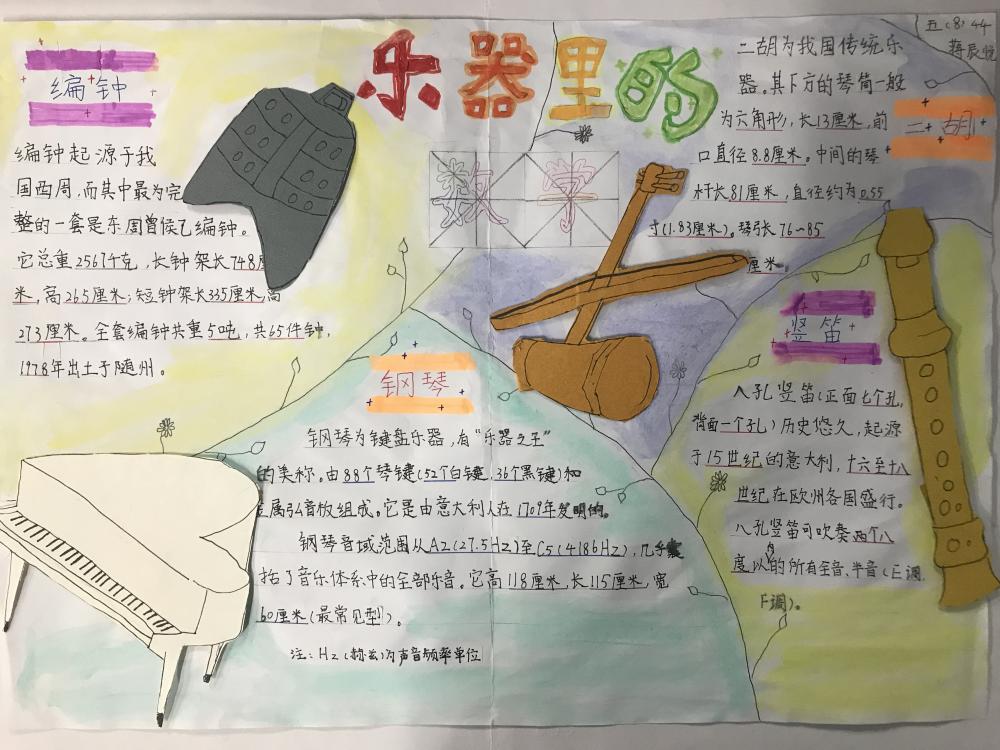 乐器里的
数 学
五(8)44
蒋辰悦
编钟
编钟起源于我
国西周,而其中最为完
整的一套是东周曾侯乙编钟。
它总重2567千克,长钟架长748厘
米,高265厘米;短钟架长335厘米,高
273厘米。全套编钟共重5吨,共65件钟,
1978年出土于随州。
二胡
二胡为我国传统乐
器。其下方的琴筒一般
为六角形,长13厘米,前
口直径8.8厘米。中间的琴
杆长81厘米,直径约为0.55
寸(1.83厘米)。琴弓长76~85
厘米。
钢琴
钢琴为键盘乐器,有“乐器之王”
的美称。由88个琴键(52个白键,36个黑键)和
金属弘音板组成。它是由意大利人在1709年发明的。
钢琴音域范围从A2(27.5HZ)至C5(4186HZ),几乎囊
括了音乐体系中的全部乐音。它高118厘米,长115厘米,宽
60厘米(最常见型)。
注:Hz(赫兹)为声音频率单位
竖笛
八孔竖笛(正面七个孔,
背面一个孔)历史悠久,起源
于15世纪的意大利,十六至十八
世纪在欧州各国盛行。
八孔竖笛可吹奏两个八
度以内的所有全音、半音(E调、
F调)。